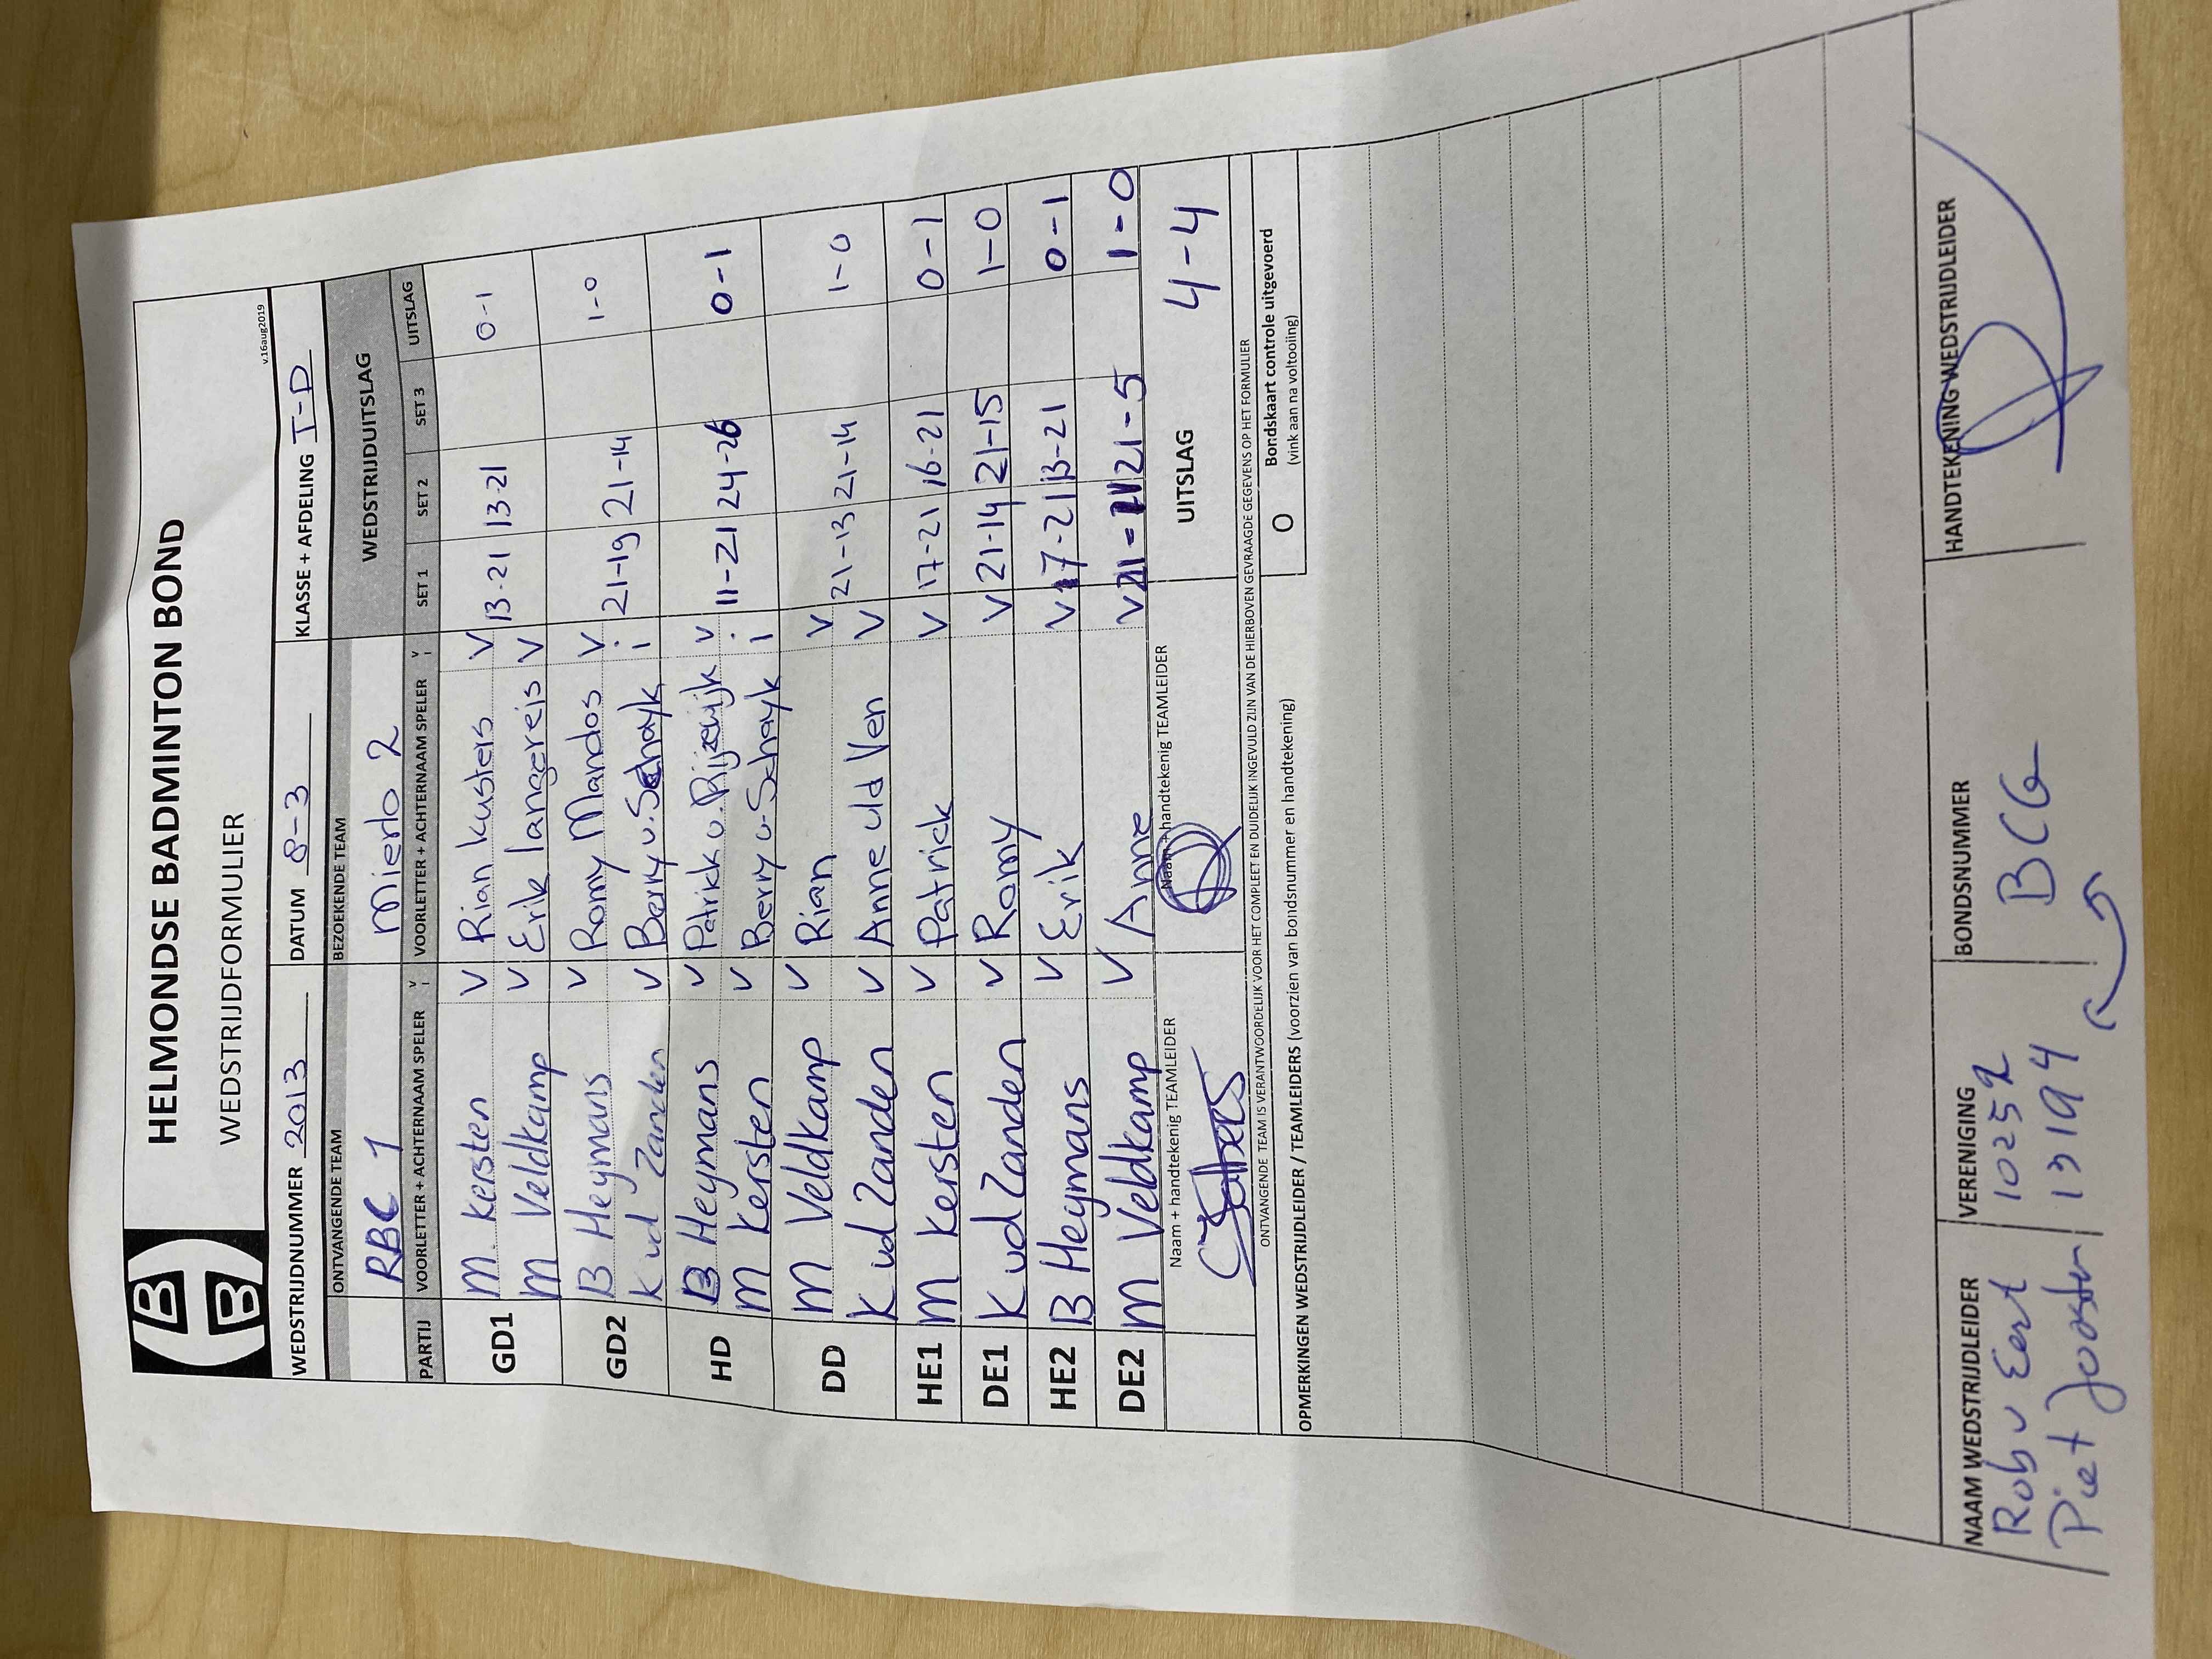 HELMONDSE BADMINTON BOND
WEDSTRIJDFORMULIER
v.16aug2019
WEDSTRIJDNUMMER 2013 DATUM 8-3 KLASSE + AFDELING I-D
ONTVANGENDE TEAM BEZOEKENDE TEAM WEDSTRIJDUITSLAG
RBC 1 Mierlo 2
PARTIJ VOORLETTER + ACHTERNAAM SPELER V I VOORLETTER + ACHTERNAAM SPELER V I SET 1 SET 2 SET 3 UITSLAG
GD1 M. Kersten V Rian Kusters V 13-21 13-21 0-1
M Veldkamp V Erik Langereis V
GD2 B Heymans V Romy Mandos V 21-19 21-14 1-0
K vd Zanden V Berry v. Schayk i
HD B Heymans V Patrick v. Rijzewijk V 11-21 24-26 0-1
M Kersten V Berry v. Schayk i
DD M Veldkamp V Rian V 21-13 21-14 1-0
K vd Zanden V Anne vld Ven V
HE1 M Kersten V Patrick V 17-21 16-21 0-1
DE1 K vd Zanden V Romy V 21-14 21-15 1-0
HE2 B Heymans V Erik V 17-21 13-21 0-1
DE2 M Veldkamp V Anne V 21- 21-5 1-0
Naam + handtekenig TEAMLEIDER Naam + handtekenig TEAMLEIDER UITSLAG 4-4
ONTVANGENDE TEAM IS VERANTWOORDELIJK VOOR HET COMPLEET EN DUIDELIJK INGEVULD ZIJN VAN DE HIERBOVEN GEVRAAGDE GEGEVENS OP HET FORMULIER
OPMERKINGEN WEDSTRIJDLEIDER / TEAMLEIDERS (voorzien van bondsnummer en handtekening) O Bondskaart controle uitgevoerd
(vink aan na voltooiing)
NAAM WEDSTRIJDLEIDER VERENIGING BONDSNUMMER HANDTEKENING WEDSTRIJDLEIDER
Rob v Eert 10252 BCG
Piet Jooster 13194